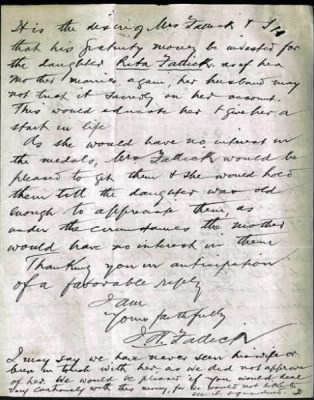 It is the desire of Mrs Fallick & I,
that his gratuity money be invested for
the daughter Rita Fallick. as if her
mother marries again, her husband may
not trust it sacredly on her account.
This would educate her & give her a
start in life
As she would have no interest in
the medals, Mrs Fallick would be
pleased to get them & she would hold
them till the daughter was old
enough to appreciate them, as
under the circumstances the mother
would have no interest in them
Thanking you in anticipation
of a favorable reply
I am
Yours faithfully
Fallick
I may say we have never seen his wife or
been in touch with her, as we did not approve
of her. We would be pleased if you would deal
very cautiously with this money, for we would not like to
see it squandered.